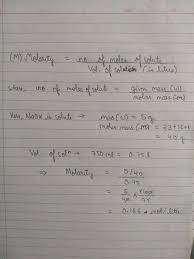 (M) Molarity = no. of moles of solute
Vol. of solution (in litres)
where, no. of moles of solute = given mass (W)
molar mass (M)
Here, NaOH is solute ⇒ mass (W) = 5 g
molar mass (M) = 23+16+1
= 40 g
Vol. of solⁿ → 750 ml = 0.75 l
⇒ Molarity = 5/40
0.75
= 5 × 100
40 75
= 0.166 mol/litre